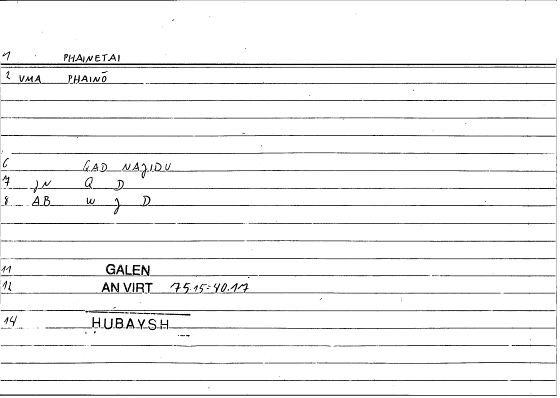 1 PHAINETAI
2 VMA PHAINŌ
6 GAD NAJIDU
7 JN Q D
8 AB W J D
11 GALEN
12 AN VIRT 75.15=40.17
14 HUBAYSH